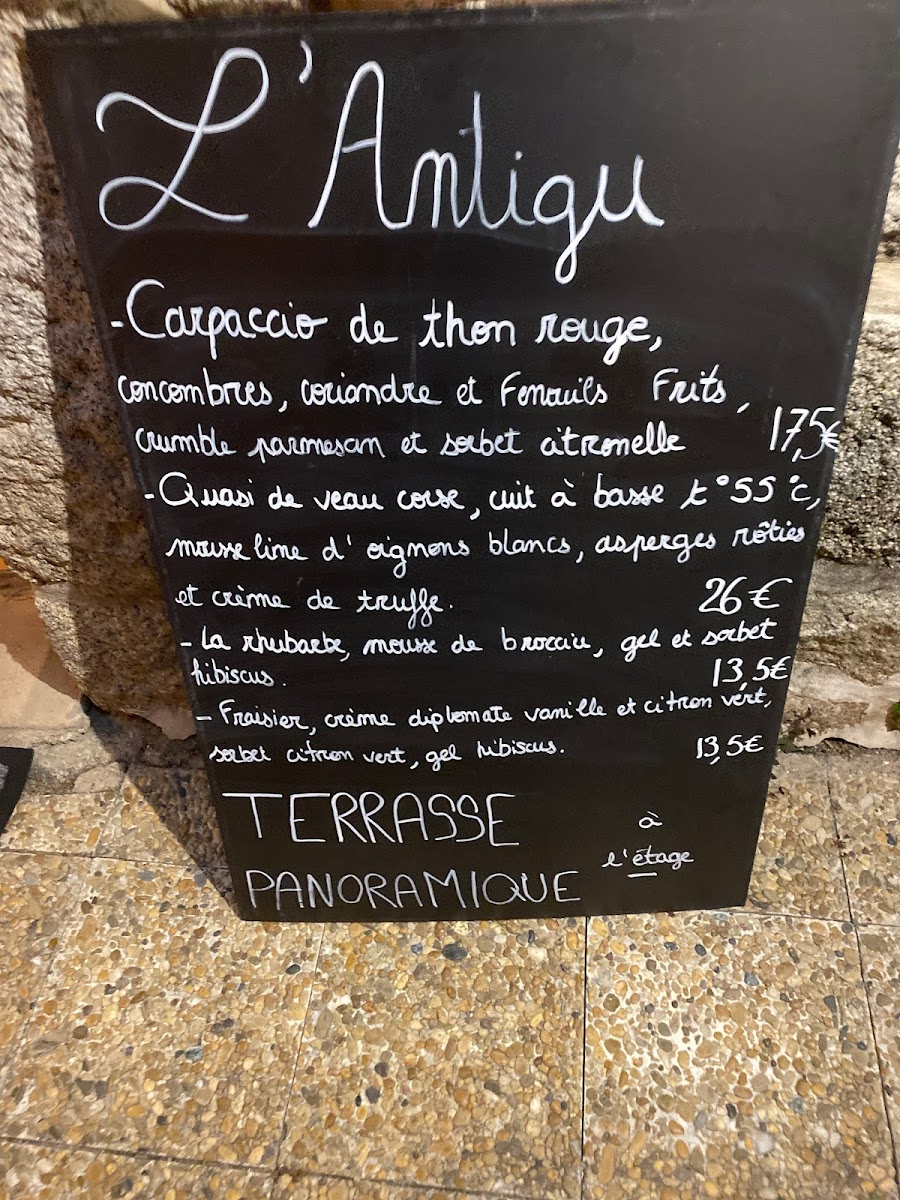 L'Antigu
- Carpaccio de thon rouge,
concombres, coriandre et Fenouils Frits,
crumble parmesan et sorbet citronelle 17,5€
- Quasi de veau corse, cuit à basse t° 55°c,
mousseline d'oignons blancs, asperges rôties
et crème de truffe. 26€
- La rhubarbe, mousse de brocciu, gel et sorbet
hibiscus. 13,5€
- Fraisier, crème diplomate vanille et citron vert,
sorbet citron vert, gel hibiscus. 13,5€
TERRASSE à
PANORAMIQUE l'étage